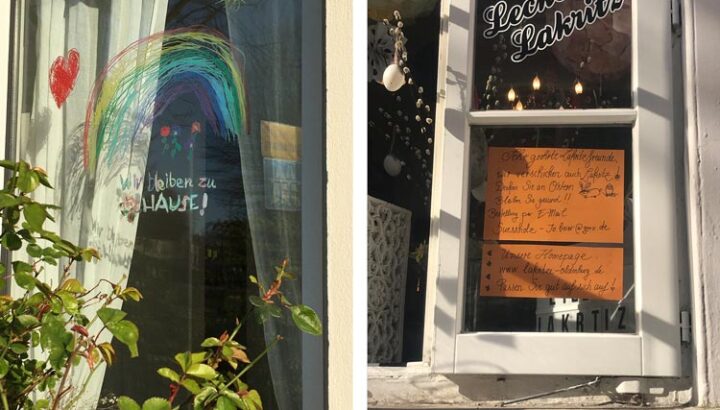 Wir bleiben zu
HAUSE!
Lakritz
geehrte Lakritzfreunde,
wir verschicken auch Lakritz
Denken Sie an Ostern
Bleiben Sie gesund!!
Bestellung per E-Mail
Unsere Homepage
www.lakritz-oldenburg.de
Passen Sie gut auf sich auf!
LAKRTIZ